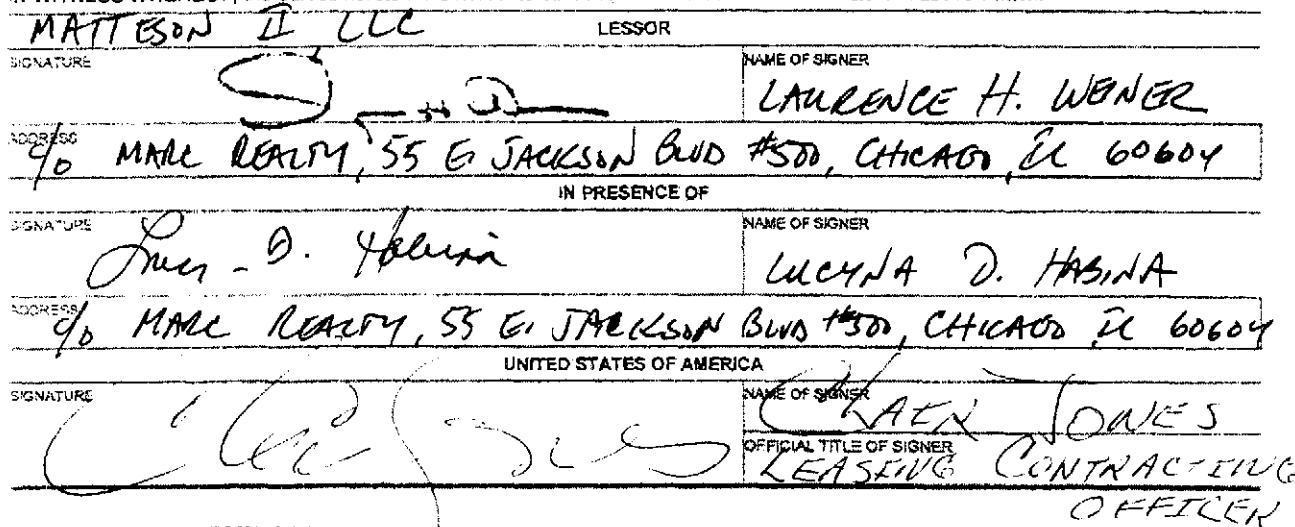 MATTESON II LLC LESSOR
SIGNATURE NAME OF SIGNER
LAURENCE H. WEINER
ADDRESS
c/o MARC REALTY, 55 E. JACKSON BLVD #500, CHICAGO, IL 60604
IN PRESENCE OF
SIGNATURE NAME OF SIGNER
D. Habina LUCYNA D. HABINA
ADDRESS
c/o MARC REALTY, 55 E. JACKSON BLVD #500, CHICAGO IL 60604
UNITED STATES OF AMERICA
SIGNATURE NAME OF SIGNER
JONES
OFFICIAL TITLE OF SIGNER
LEASING CONTRACTING
OFFICER